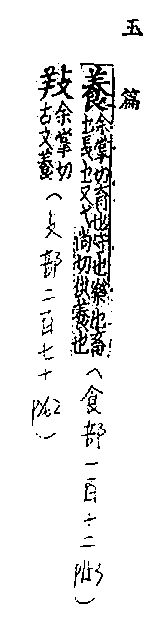 玉篇
養余掌切育也守也樂也畜也長也又弋尚切供養也(食部一百十二
𢼝余掌切古文養(攴部二百七十